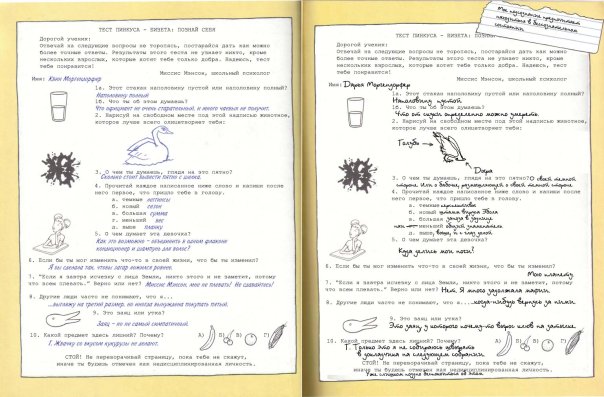 ТЕСТ ПИНКУСА - БИЗЕТА: ПОЗНАЙ СЕБЯ
Дорогой ученик!
Отвечай на следующие вопросы не торопясь, постарайся дать как можно
более точные ответы. Результаты этого теста не узнает никто, кроме
нескольких взрослых, которые хотят тебе только добра. Надеюсь, тест
тебе понравится!
Миссис Мэнсон, школьный психолог
Имя: Квин Моргендорффер
1а. Этот стакан наполовину пустой или наполовину полный?
Наполовину полный
1б. Что ты об этом думаешь?
Что официант не очень старательный, и много чаевых не получит.
2. Нарисуй на свободном месте под этой надписью животное,
которое лучше всего олицетворяет тебя:
3. О чем ты думаешь, глядя на это пятно?
Сколько стоит вывести пятно с шелка.
4. Прочитай каждое написанное ниже слово и напиши после
него первое, что пришло тебе в голову.
а. темные леггинсы
б. новый сезон
в. большая сумма
г. меньший вес
д. выше планку
5. О чем думает эта девочка?
Как это возможно - объединить в одном флаконе
кондиционер и шампунь для волос?
6. Если бы ты мог изменить что-то в своей жизни, что бы ты изменил?
Я бы сделала так, чтобы загар ложился ровнее.
7. "Если я завтра исчезну с лица Земли, никто этого и не заметит, потому
что всем плевать." Верно или нет? Миссис Мэнсон, мне не плевать! Не сдавайтесь!
8. Другие люди часто не понимают, что я...
...выгляжу на третий размер, но иногда вынуждена покупать пятый.
9. Это заяц или утка?
Заяц - но не самый симпатичный.
10. Какой предмет здесь лишний? Почему?
А) Б) В) Г)
Г. Жвачку со вкусом кукурузы не делают.
СТОЙ! Не переворачивай страницу, пока тебе не скажут,
иначе ты будешь отмечен как недисциплинированная личность.
ТЕСТ ПИНКУСА - БИЗЕТА: ПОЗНАЙ СЕБЯ
Дорогой ученик!
Отвечай на следующие вопросы не торопясь, постарайся дать как можно
более точные ответы. Результаты этого теста не узнает никто, кроме
нескольких взрослых, которые хотят тебе только добра. Надеюсь, тест
тебе понравится!
Миссис Мэнсон, школьный психолог
Имя: Дарья Моргендорффер
1а. Этот стакан наполовину пустой или наполовину полный?
Наполовину пустой
1б. Что ты об этом думаешь?
Что от жажды определенно можно умереть.
2. Нарисуй на свободном месте под этой надписью животное,
которое лучше всего олицетворяет тебя:
Голубь
Дафна
3. О чем ты думаешь, глядя на это пятно? О своей темной
стороне. Или о бабочке, размышляющей о своей темной стороне.
4. Прочитай каждое написанное ниже слово и напиши после
него первое, что пришло тебе в голову.
а. темные
б. новый
в. большая заноза в заднице
г. меньший общий знаменатель
д. выше
5. О чем думает эта девочка?
Куда делись мои ноги!
6. Если бы ты мог изменить что-то в своей жизни, что бы ты изменил?
Мою планету
7. "Если я завтра исчезну с лица Земли, никто этого и не заметит, потому
что всем плевать." Верно или нет? Нет. Я много задолжала мафии.
8. Другие люди часто не понимают, что я... ...когда-нибудь вернусь за ними.
9. Это заяц или утка?
Это заяц, у которого почему-то вырос клюв на затылке.
10. Какой предмет здесь лишний? Почему?
А) Б) В) Г)
СТОЙ! Не переворачивай страницу, пока тебе не скажут,
иначе ты будешь отмечен как недисциплинированная личность.